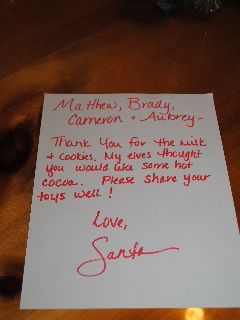 Matthew, Brady,
Cameron + Aubrey-
Thank You for the milk
+ cookies. My elves thought
you would like some hot
cocoa. Please share your
toys well!
Love,
Santa